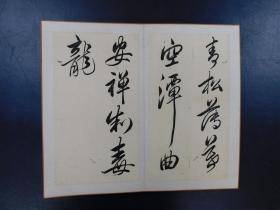 青松薄暮
空潭曲
安禪制毒
龍